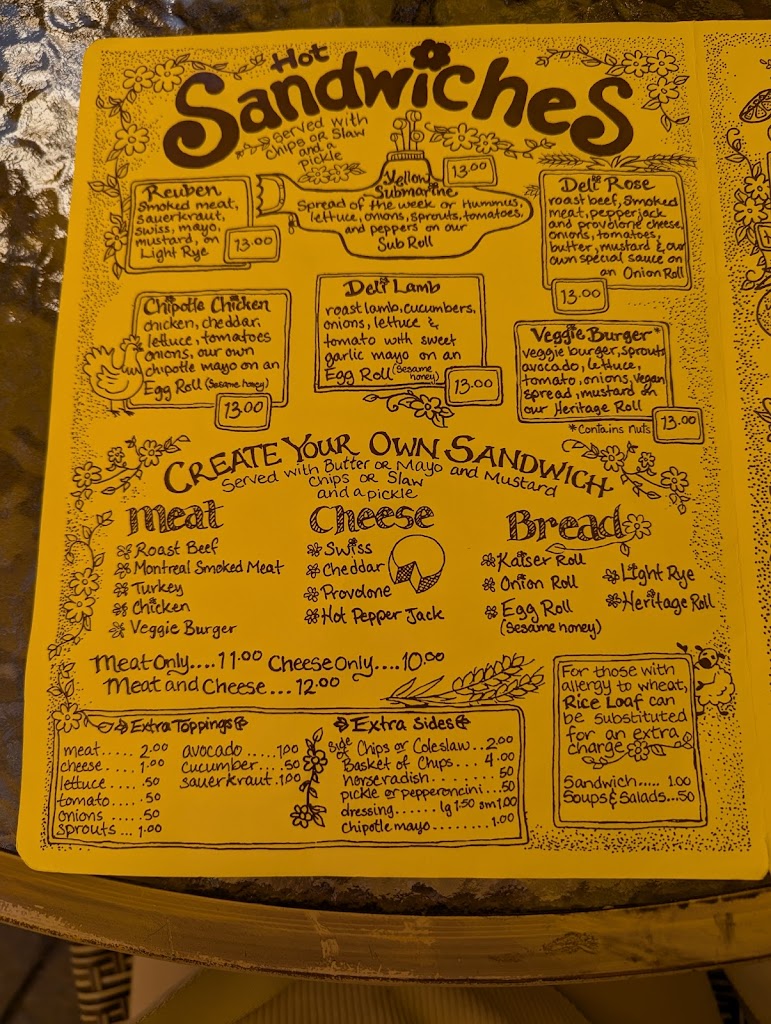 Hot
Sandwiches
Served with
Chips or Slaw
and a
pickle
Reuben
Smoked meat,
sauerkraut,
swiss, mayo,
mustard, on
Light Rye
13.00
Yellow
Submarine
13.00
Spread of the week or Hummus,
lettuce, onions, sprouts, tomatoes,
and peppers on our
Sub Roll
Deli Rose
roast beef, smoked
meat, pepperjack
and provolone cheese,
onions, tomatoes,
butter, mustard & our
own special sauce on
an Onion Roll
13.00
Chipotle Chicken
chicken, cheddar,
lettuce, tomatoes
onions, our own
chipotle mayo on an
Egg Roll (Sesame honey)
13.00
Deli Lamb
roast lamb, cucumbers,
onions, lettuce &
tomato with sweet
garlic mayo on an
Egg Roll (Sesame honey)
13.00
Veggie Burger*
veggie burger, sprouts
avocado, lettuce,
tomato, onions, vegan
spread, mustard on
our Heritage Roll
13.00
*Contains nuts
Create Your Own Sandwich
Served with Butter or Mayo and Mustard
Chips or Slaw
and a pickle
Meat
Roast Beef
Montreal Smoked Meat
Turkey
Chicken
Veggie Burger
Cheese
Swiss
Cheddar
Provolone
Hot Pepper Jack
Bread
Kaiser Roll
Onion Roll
Egg Roll
(Sesame honey)
Light Rye
Heritage Roll
Meat Only....11.00 Cheese Only....10.00
Meat and Cheese...12.00
Extra Toppings
meat..... 2.00
cheese.... 1.00
lettuce..... .50
tomato..... .50
onions..... .50
sprouts ... 1.00
avocado.....1.00
cucumber....50
sauerkraut.1.00
Extra Sides
Side of Chips or Coleslaw...2.00
Basket of Chips.....4.00
horseradish.........50
pickle or pepperoncini....50
dressing.......lg 1.50 sm 1.00
chipotle mayo..........1.00
For those with
allergy to wheat,
Rice Loaf can
be substituted
for an extra
charge
Sandwich..... 1.00
Soups & Salads...50